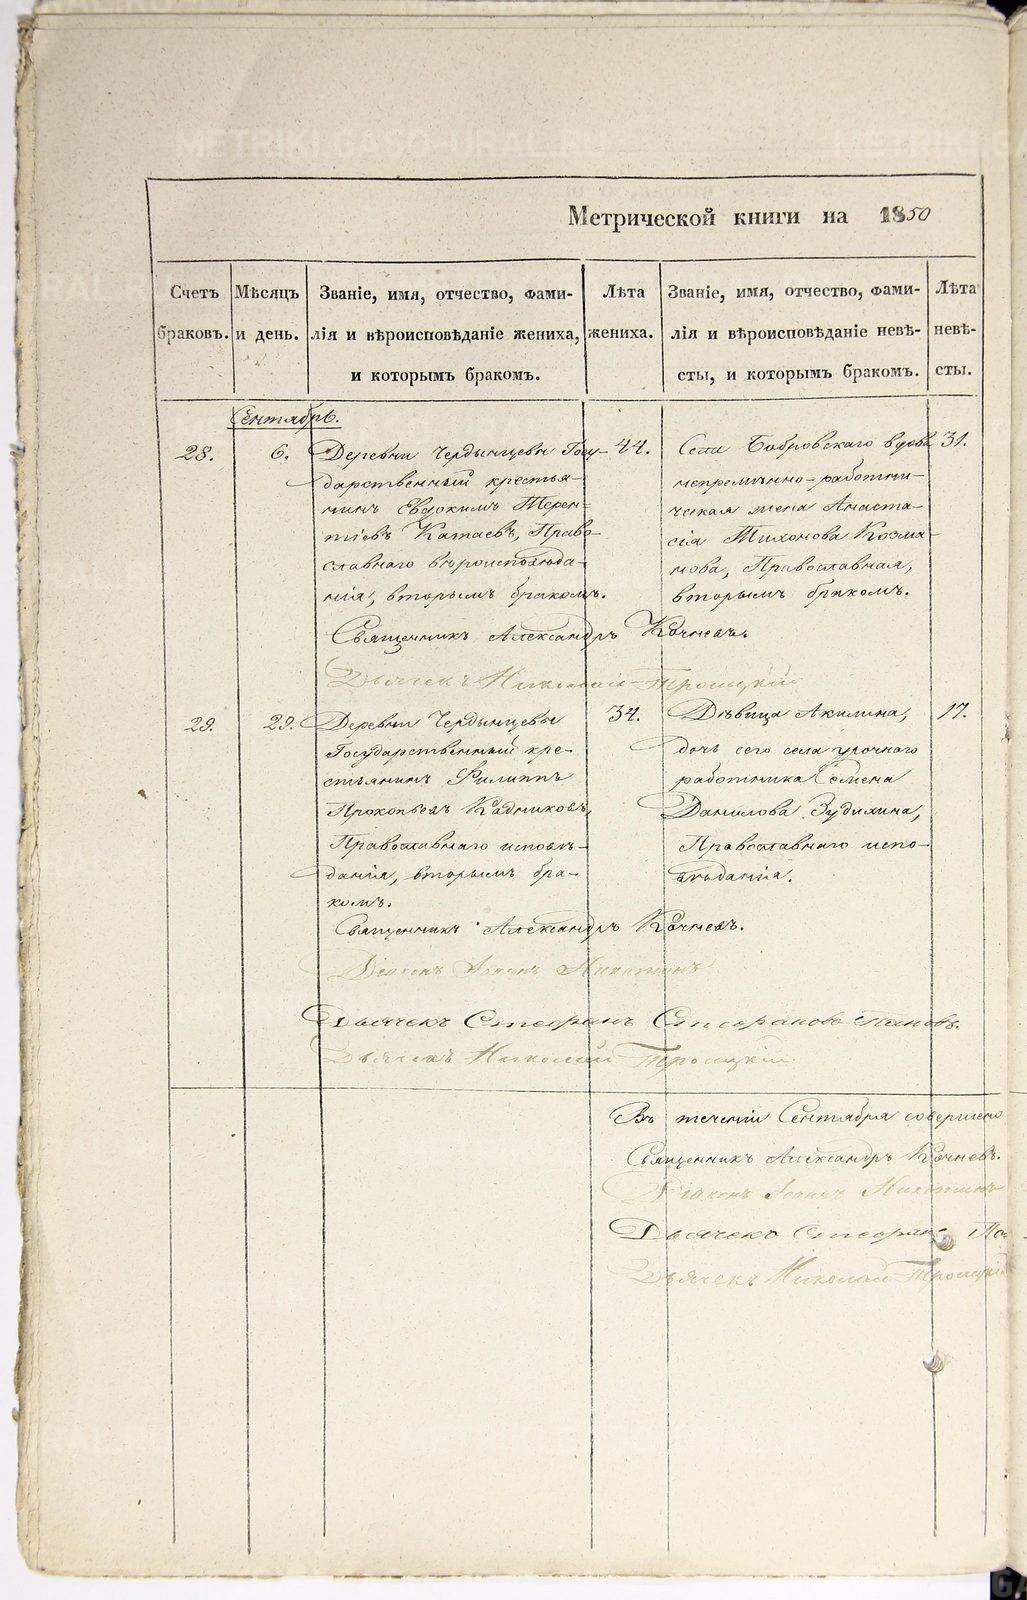 METRIKI.GASO-URAL.RU
Метрической книги на 1850
Счетъ браковъ.
Мѣсяцъ и день.
Званіе, имя, отчество, фами-
лія и вѣроисповѣданіе жениха,
и которымъ бракомъ.
Лѣта жениха.
Званіе, имя, отчество, фами-
лія и вѣроисповѣданіе невѣ-
сты, и которымъ бракомъ.
Лѣта невѣ-
сты.
Сентябрь.
28.
6.
Деревни Чердынцевы Госу-
дарственный крестья-
нинъ Евдокимъ Терен-
тіевъ Катаевъ, Право-
славнаго вѣроисповѣда-
нія, вторымъ бракомъ.
44.
Села Бобровскаго вдова
непремѣнно-работни-
ческая жена Анаста-
сія Тихонова Козма-
нова, Православная,
вторымъ бракомъ.
31.
Священникъ Александръ Кочневъ.
Дьячекъ Николай Троицкій
29.
29.
Деревни Чердынцевы
Государственный кре-
стьянинъ Филиппъ
Прокопьевъ Кадниковъ,
Православнаго исповѣ-
данія, вторымъ бра-
комъ.
34.
Дѣвица Акилина,
дочь сего села урочнаго
работника Семена
Данилова Зудихина,
Православнаго испо-
вѣданія.
17.
Священникъ Александръ Кочневъ.
Діаконъ Іоаннъ Никитинъ
Дьячекъ Стефанъ Стефановъ Поповъ.
Дьячекъ Николай Троицкій
Въ теченіи Сентября совершено
Священникъ Александръ Кочневъ.
Діаконъ Іоаннъ Никитинъ
Дьячекъ Стефанъ По-
Дьячекъ Николай Троицкій